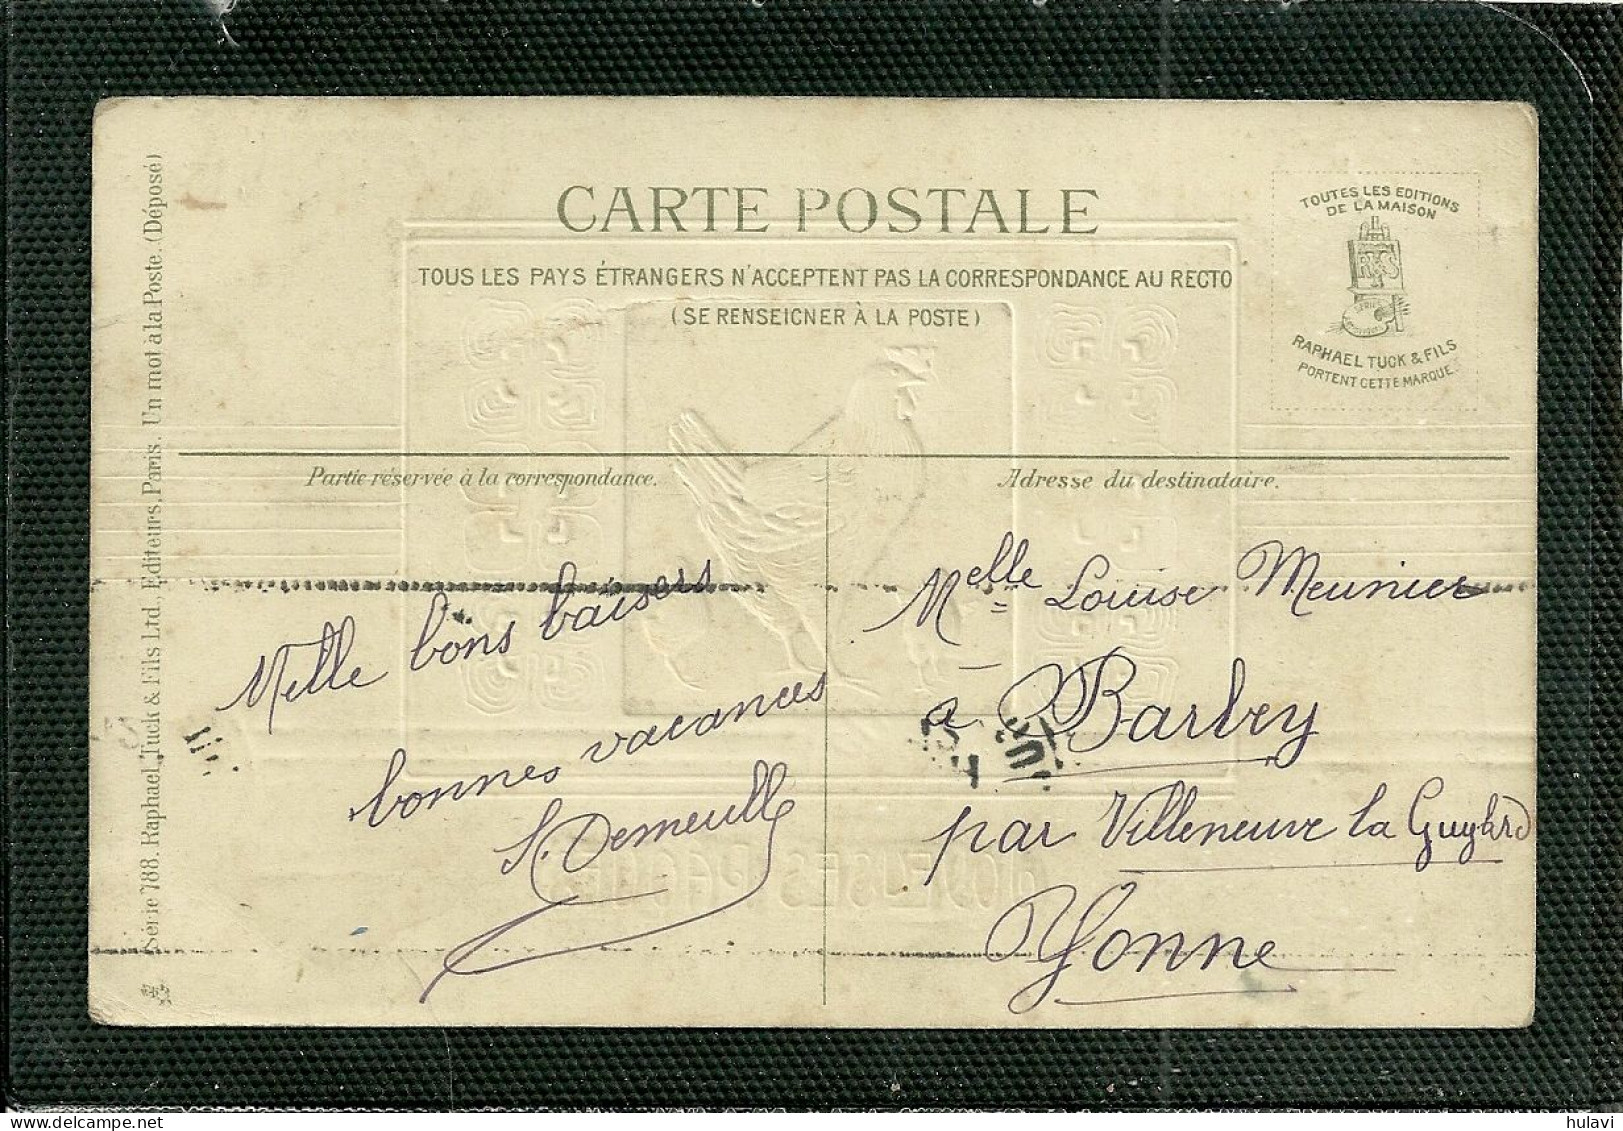 CARTE POSTALE
TOUS LES PAYS ÉTRANGERS N'ACCEPTENT PAS LA CORRESPONDANCE AU RECTO
(SE RENSEIGNER À LA POSTE)
TOUTES LES EDITIONS
DE LA MAISON
RAPHAEL TUCK & FILS
PORTENT CETTE MARQUE.
Partie réservée à la correspondance.
Adresse du destinataire.
Mille bons baisers
bonnes vacances
Demeulle
Melle Louise Meunier
à Barbey
par Villeneuve la Guyard
Yonne
Série 788. Raphael Tuck & Fils Ltd. Editeurs, Paris. Un mot à la Poste. (Déposé)
JOYEUSES PÂQUES
hulavi